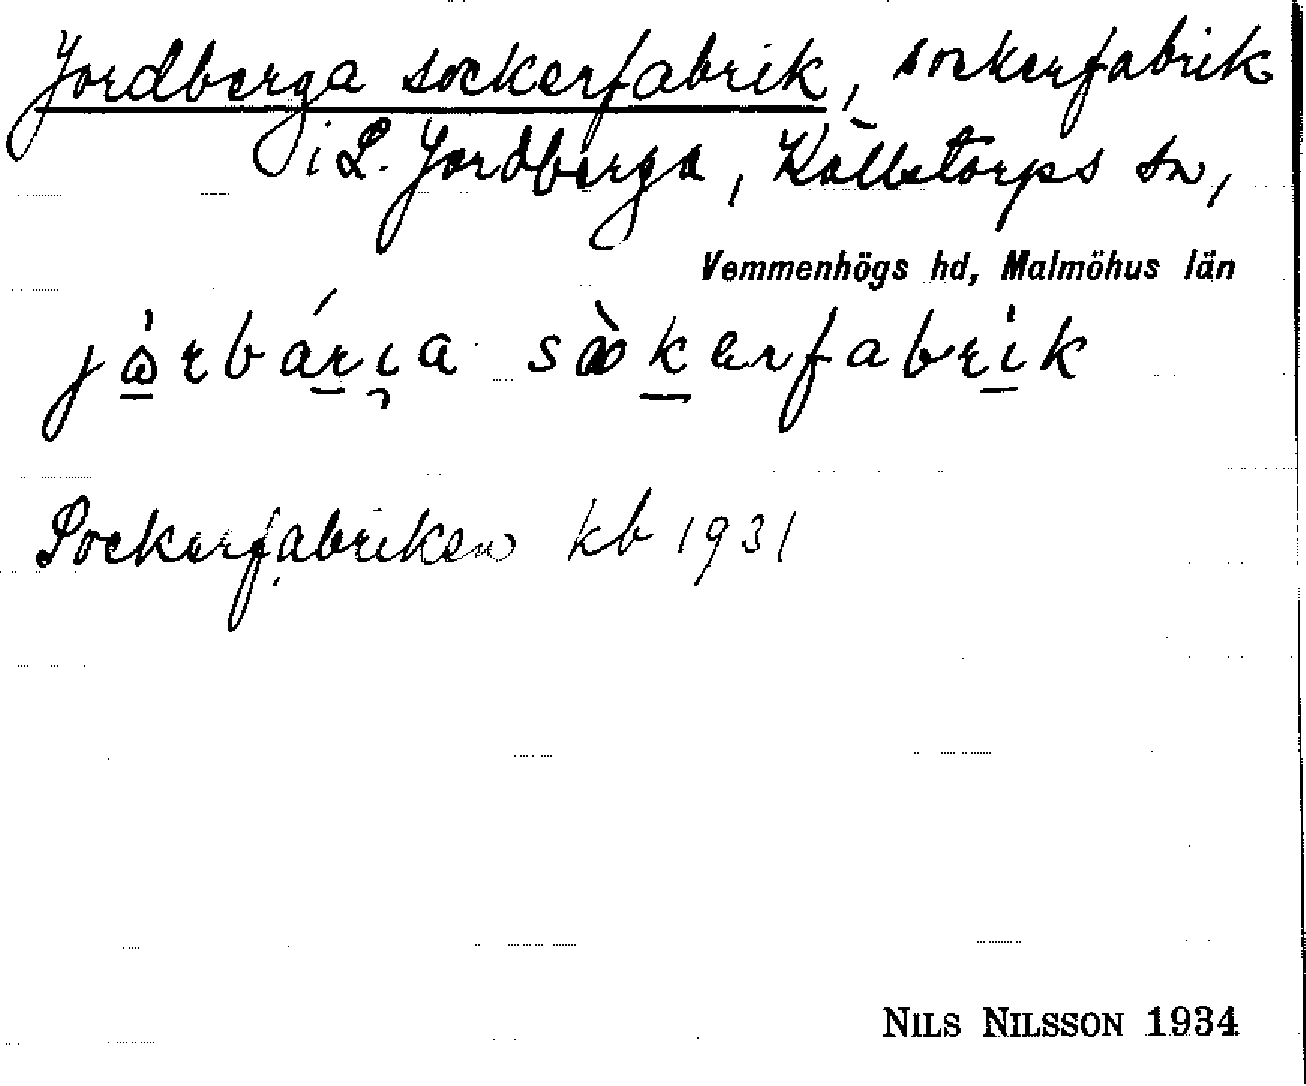 Jordberga sockerfabrik, sockerfabrik
i L. Jordberga, Källstorps sn,
Vemmenhögs hd, Malmöhus län
Sockerfabriken kb 1931
NILS NILSSON 1934